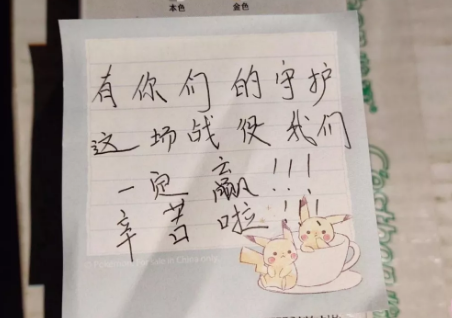 本色 金色
有你们的守护
这场战役我们
一定赢!!!
辛苦啦!!!